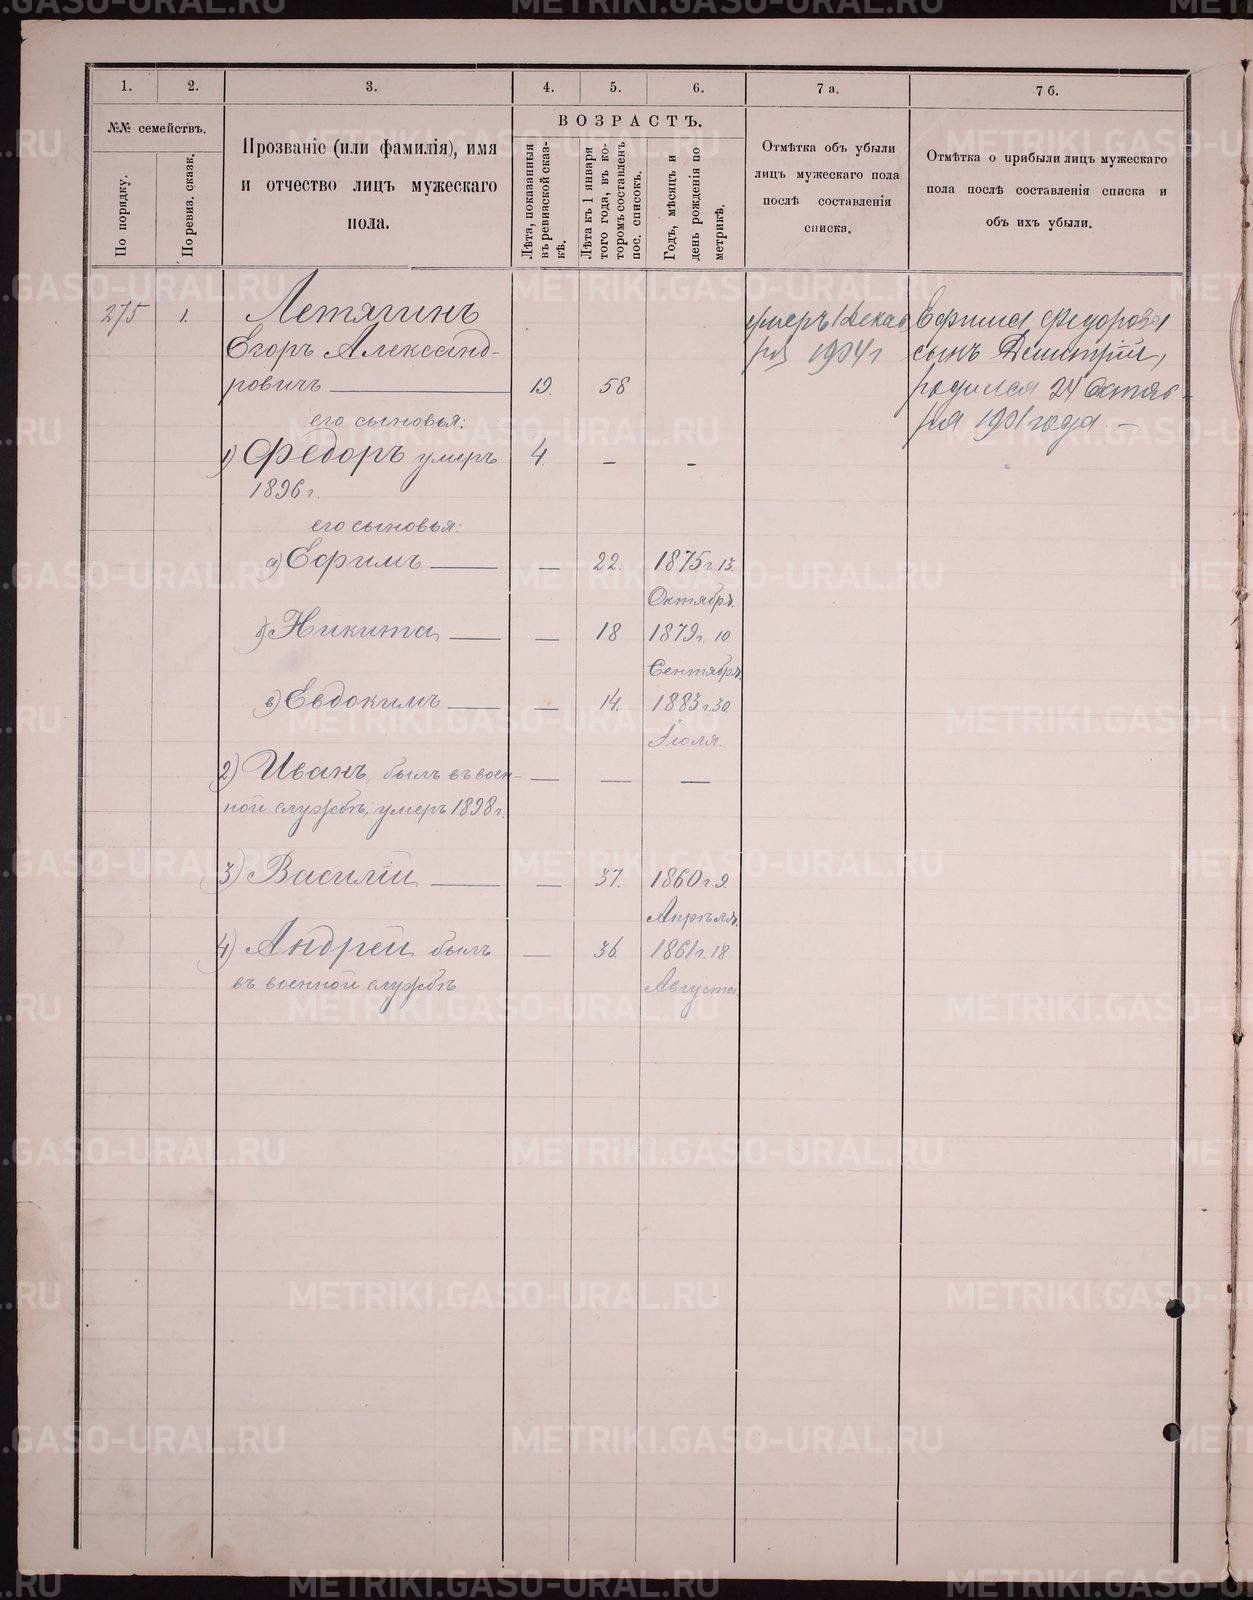 1.
2.
3.
4.
5.
6.
7 а.
7 б.
№№ семействъ.
По порядку.
По ревиз. сказк.
Прозваніе (или фамилія), имя
и отчество лицъ мужескаго
пола.
ВОЗРАСТЪ.
Лѣта, показанныя
въ ревизской сказ-
кѣ.
Лѣта къ 1 января
того года, въ ко-
торомъ составленъ
пос. списокъ.
Годъ, мѣсяцъ и
день рожденія по
метрикѣ.
Отмѣтка объ убыли
лицъ мужескаго пола
послѣ составленія
списка.
Отмѣтка о прибыли лицъ мужескаго
пола послѣ составленія списка и
объ ихъ убыли.
275 1. Летягинъ
Егоръ Александ-
ровичъ 19. 58
умеръ 1 Декаб
ря 1904 г
Ефима Федорова
сынъ Димитрій,
родился 24 Октяб-
ря 1901 года. —
его сыновья:
1) Федоръ умеръ 4. — -
1896 г.
его сыновья:
а) Ефимъ — — 22. 1875 г 13.
Октября.
б) Никита — — 18 1879 г. 10
Сентября.
в) Евдокимъ — — 14. 1883 г 30.
Іюля.
2) Иванъ, былъ въ воен- — — —
ной службѣ, умеръ 1898 г.
3) Василій — — 37. 1860 г 9.
Апрѣля.
4) Андрей былъ — 36. 1861 г. 18
въ военной службѣ Августа.
METRIKI.GASO-URAL.RU